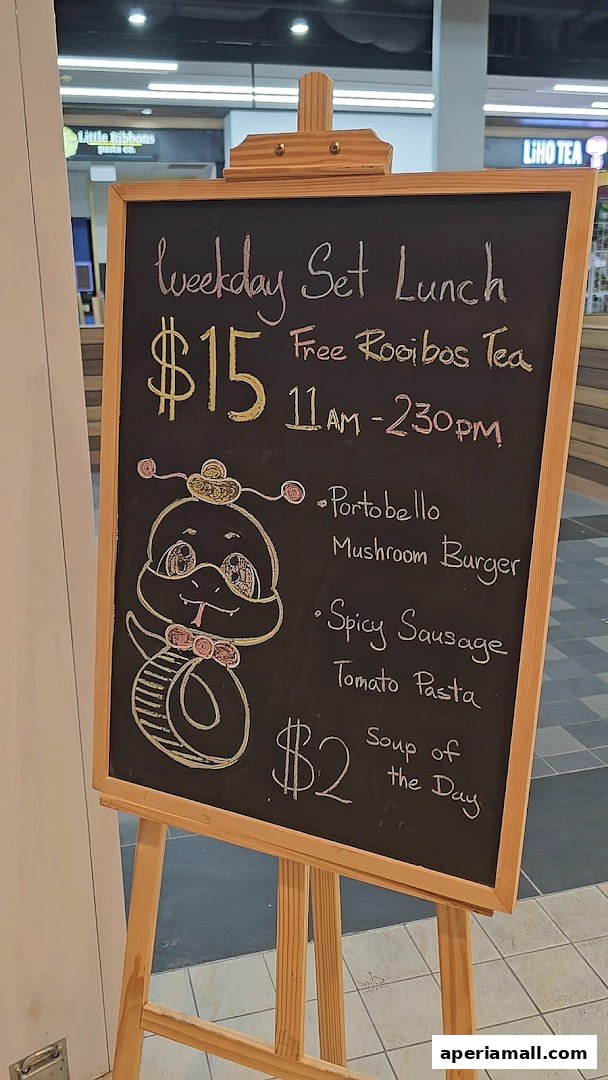 Little Ribbons
pasta co.
LiHO TEA
Weekday Set Lunch
$15 Free Rooibos Tea
11AM - 230PM
• Portobello
Mushroom Burger
• Spicy Sausage
Tomato Pasta
$2 Soup of
the Day
aperiamall.com